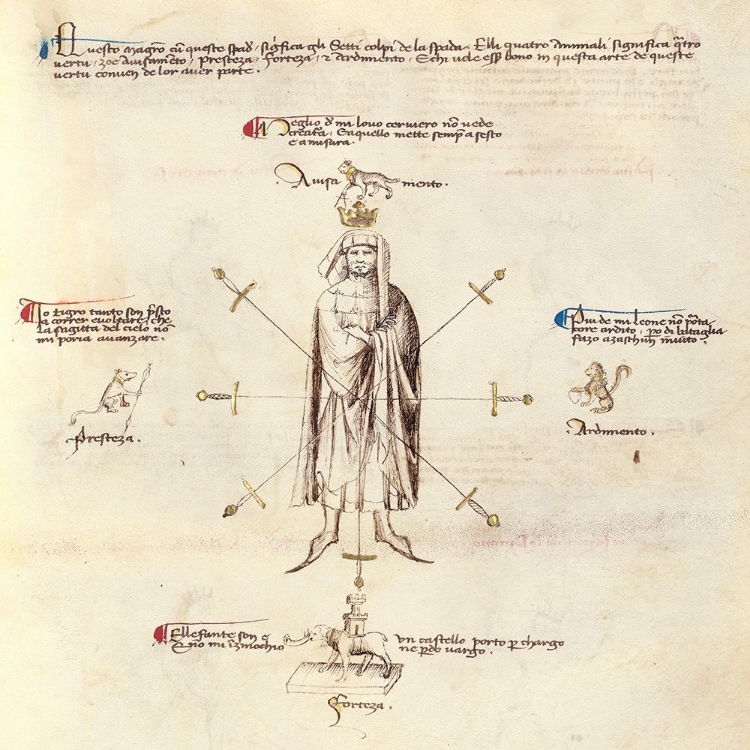 Questo magro cu queste spad, sigfica gli Setti colpi de la spada. Elli quatro Animali significa qtro
vertu, zoe Avisamēto, Presteza, Forteza, & Ardimento. E chi vole ess bono in questa arte de queste
vertu conven de lor aver parte.
Meglio d mi lovo cerviero nō vede
creat'a. E aquello mette semp a sesto
e a misura.
Avisa mento.
Io tigro tanto son psto
a correr e voltare, che
la sagitta del cielo nō
mi poria avanzare.
Presteza.
Piu de mi leone nō pōta
core ardito, po di bataglia
fazo azaschun invito.
Ardimento.
Ellefante son e un castello porto p chargo
E nō mi īzinochio ne pdo vargo.
Forteza.